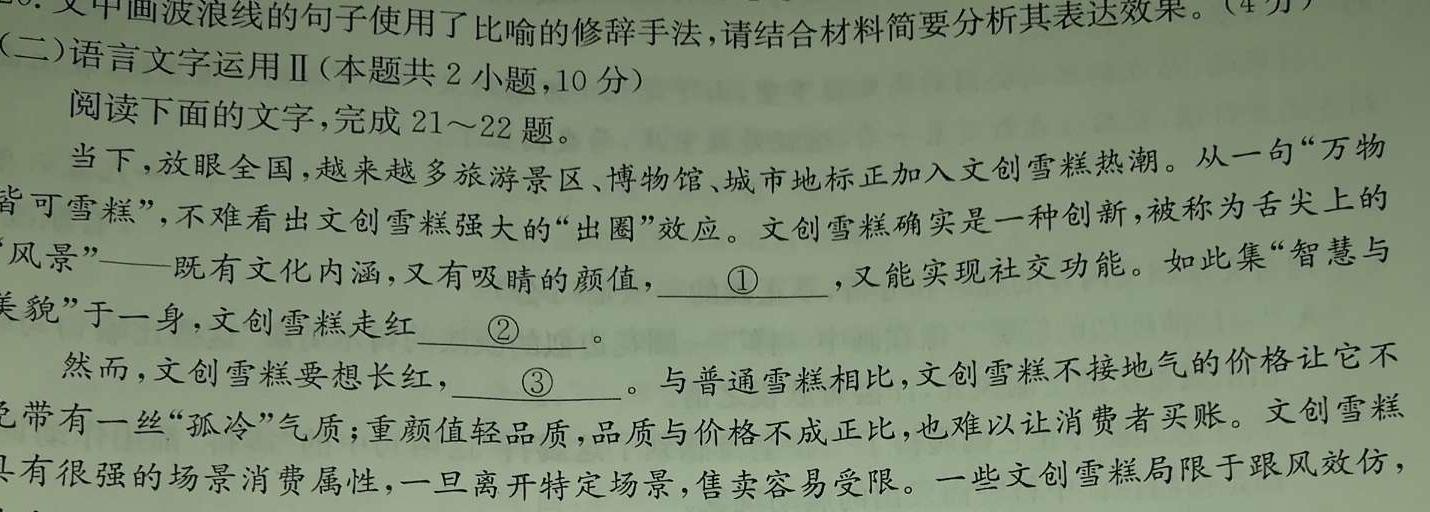 文中画波浪线的句子使用了比喻的修辞手法,请结合材料简要分析其表达效果。(4分)
(二)语言文字运用Ⅱ(本题共2小题,10分)
阅读下面的文字,完成21~22题。
当下,放眼全国,越来越多旅游景区、博物馆、城市地标正加入文创雪糕热潮。从一句“万物
皆可雪糕”,不难看出文创雪糕强大的“出圈”效应。文创雪糕确实是一种创新,被称为舌尖上的
“风景”——既有文化内涵,又有吸睛的颜值,①,又能实现社交功能。如此集“智慧与
美貌”于一身,文创雪糕走红②。
然而,文创雪糕要想长红,③。与普通雪糕相比,文创雪糕不接地气的价格让它不
免带有一丝“孤冷”气质;重颜值轻品质,品质与价格不成正比,也难以让消费者买账。文创雪糕
具有很强的场景消费属性,一旦离开特定场景,售卖容易受限。一些文创雪糕局限于跟风效仿,